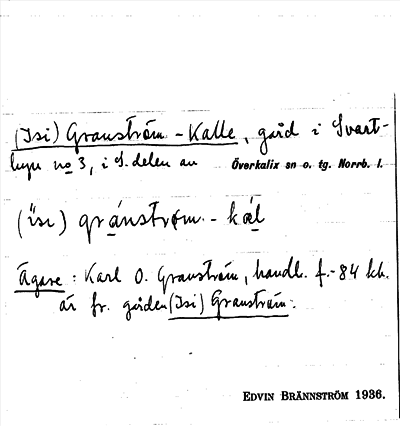 (Isi) Granström-Kalle, gård i Svart-
byn no 3, i S. delen av Överkalix sn o. tg. Norrb. l.
(ìsı) gránstrøm - kæ̀l
Ägare: Karl O. Granström, handl. f.-84 kh.
är fr. gården (Isi) Granström.
EDVIN BRÄNNSTRÖM 1936.